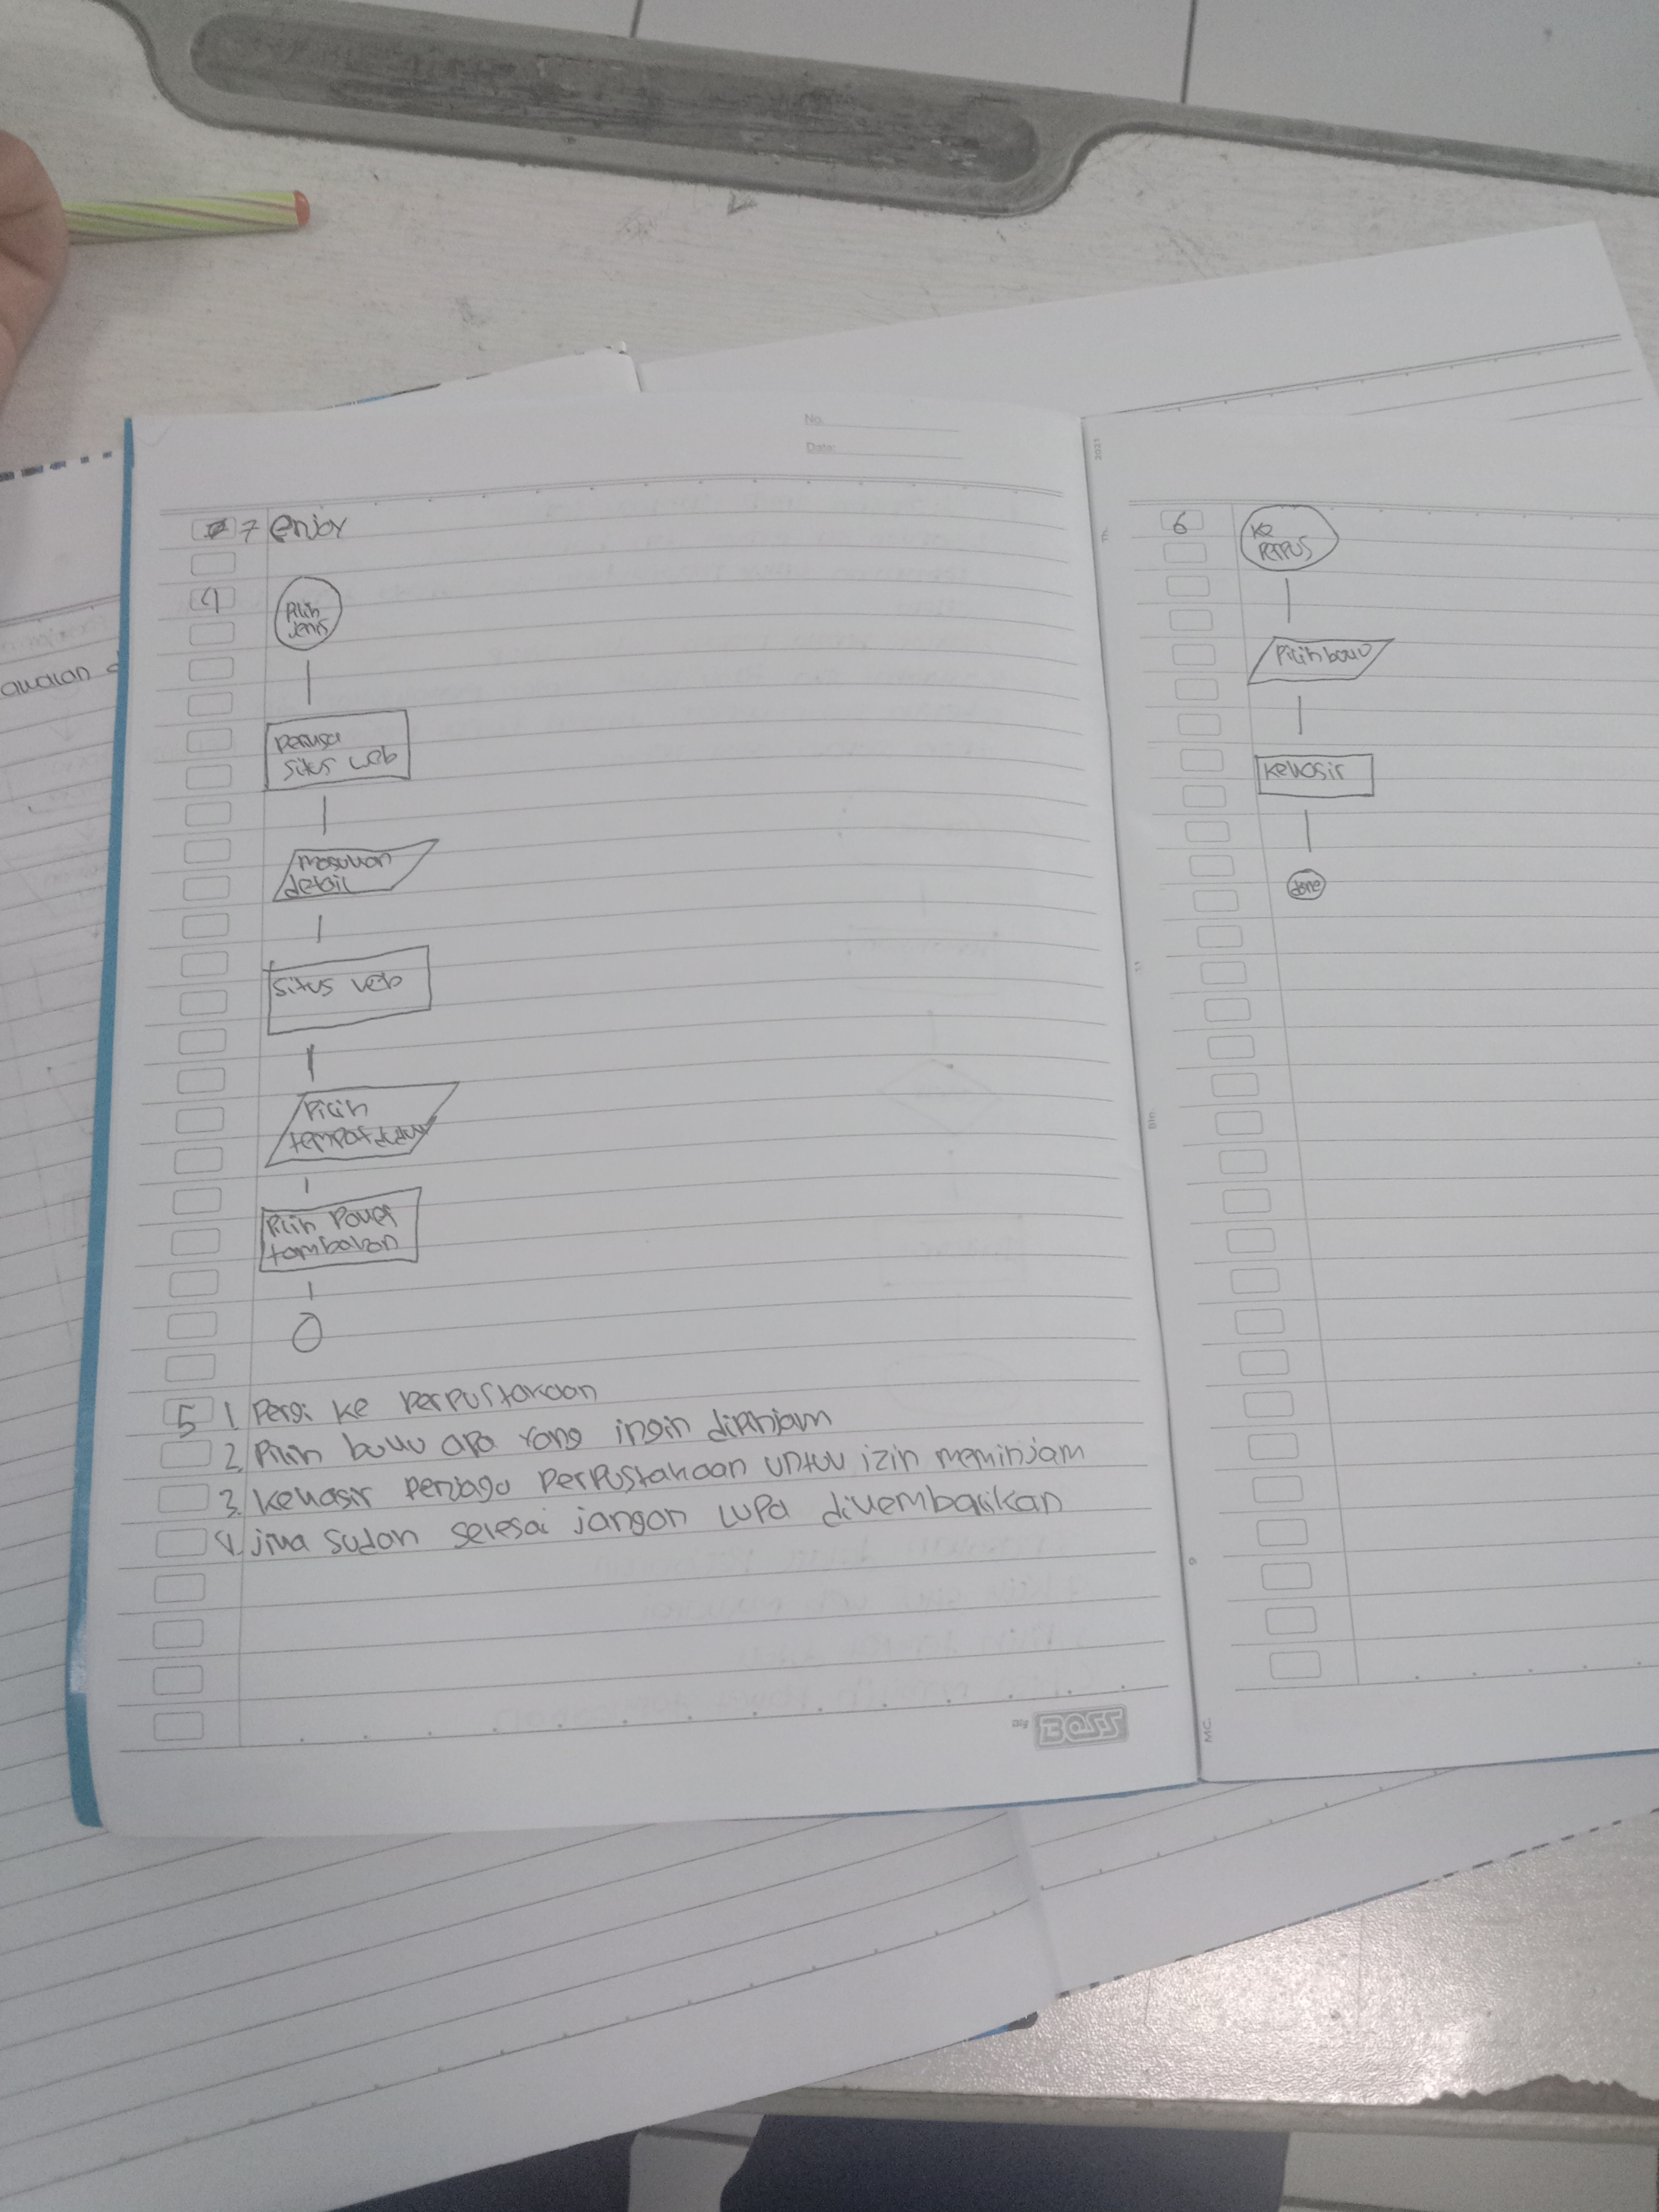 No.
Date:
7 enjoy
4
Pilih
Jenis
Periksa
Situs web
masukan
detail
Situs web
Pilih
tempat duduk
Pilih Power
tambahan
5 1. Pergi ke Perpustakaan
2. Pilih buku apa yang ingin dipinjam
3. kekasir penjaga Perpustakaan untuk izin meminjam
4. jika sudah selesai jangan lupa dikembalikan
Big BOSS
2021
Th.
11
Bln.
9
MC.
6
ke
PerPus
Pilih buku
kekasir
done
awalan